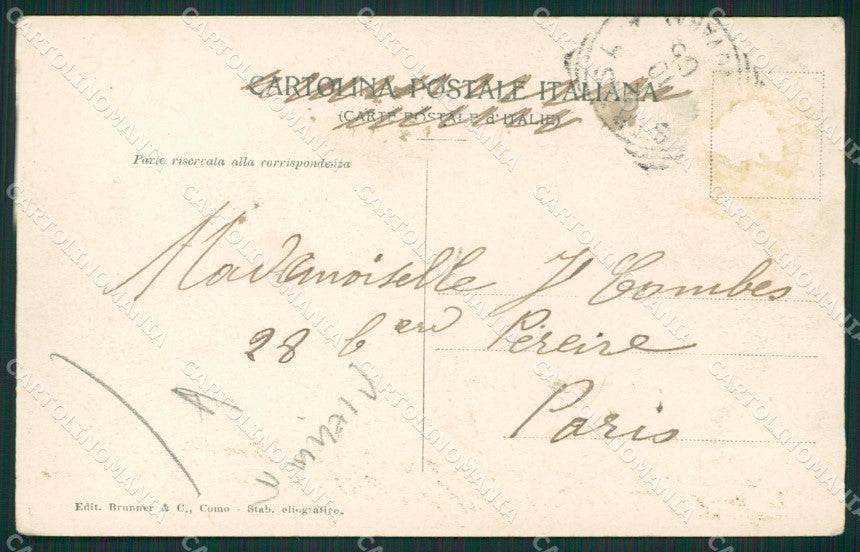 CARTOLINA POSTALE ITALIANA
(CARTE POSTALE d'ITALIE)
Parte riservata alla corrispondenza
Mademoiselle J Combes
28 Bard Pereire
Paris
Edit. Brunner & C., Como - Stab. eliografico.
CARTOLINOMANIA